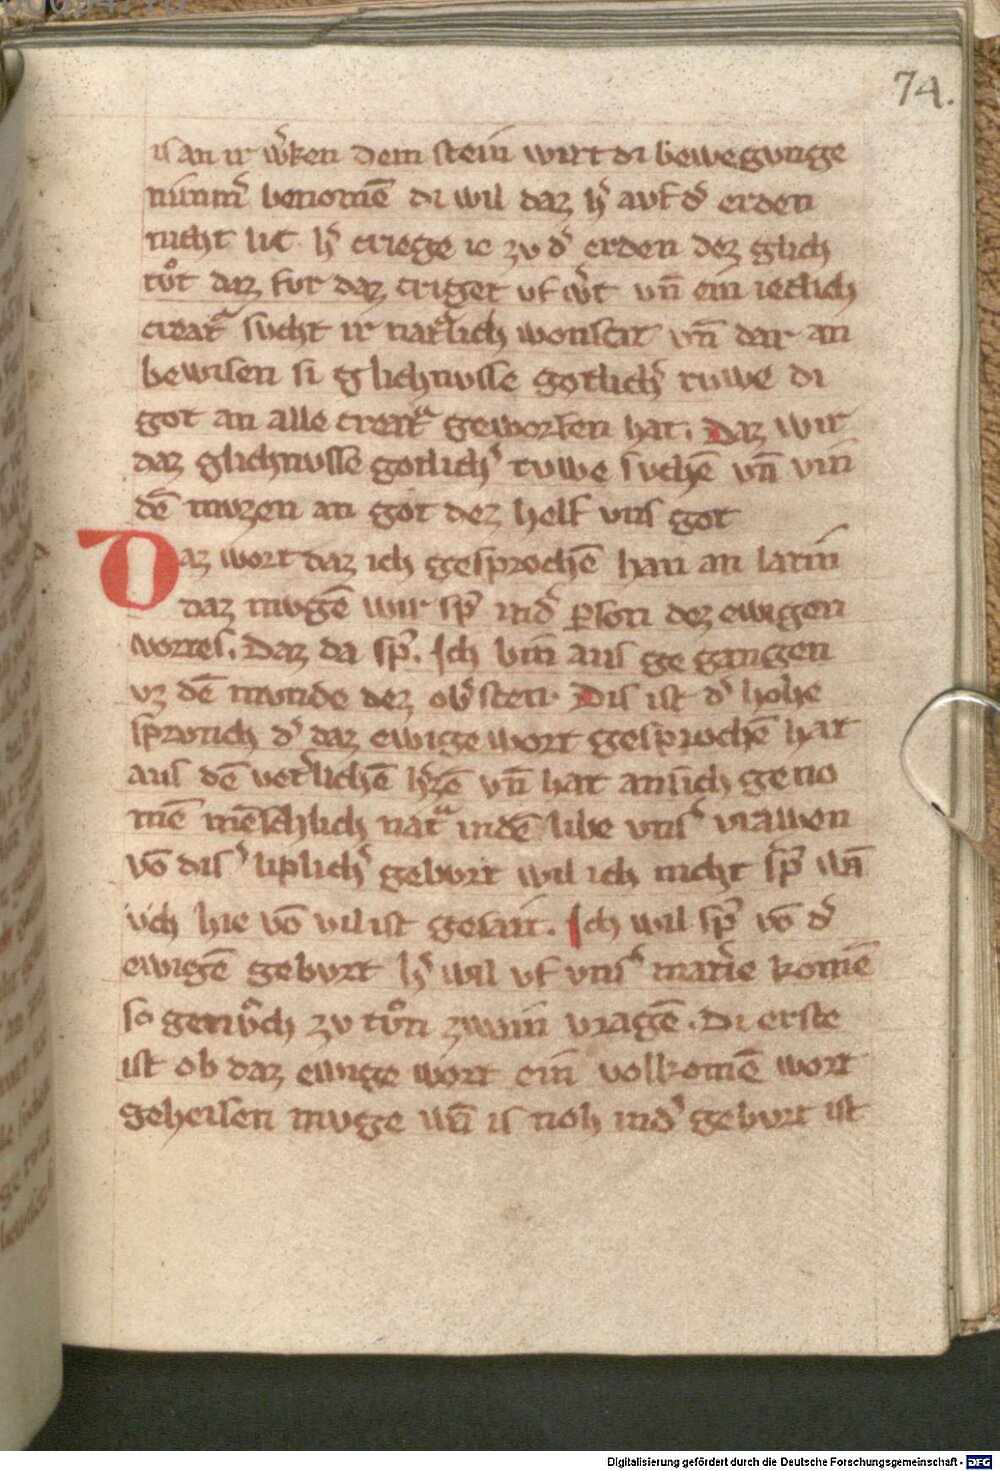 74.
is an ir w᷒ken dem stein wirt di bewegunge
nimm᷒ benomē di wil daz h᷒ auf d᷒ erden
nicht lit h᷒ criege ie zu d᷒ erden dez glich
tuͦt daz fur daz criget uf w᷒t vn̄ ein ieclich
creatᵃ sucht ir nat᷒lich wonstat vn̄ dar an
bewisen si glichnusse gotlich᷒ ruwe di
got an alle creatᵃ geworfen hat. Daz wir
daz glichnusse gotlich᷒ ruwe suchē vn̄ vin
dē muzen an got dez helf vns got
Daz wort daz ich gesprochē han an latin
daz mugē wir sp᷒ in d᷒ ꝑson dez ewigen
wortes. Daz da sp᷒. Ich bin aus ge gangen
vz dē munde dez ob᷒sten. Dis ist d᷒ hohe
spruch d᷒ daz ewige wort gesprochē hat
aus dē vet᷒lichē h᷒zē vn̄ hat an sich geno
mē mēschlich natᵃ in dē libe vns᷒ vrawen
vō dis᷒ liplich᷒ geburt wil ich nicht sp᷒ wā
uch hie vō vil ist gesait. Ich wil sp᷒ vō d᷒
ewigē geburt h᷒ wil uf vns᷒ mat᷒ie komē
so genuͦch zu tuͦn zwain vragē. Di erste
ist ob daz ewige wort ein volkomē wort
geheisen muge wā is noh in d᷒ geburt ist
Digitalisierung gefördert durch die Deutsche Forschungsgemeinschaft - DFG